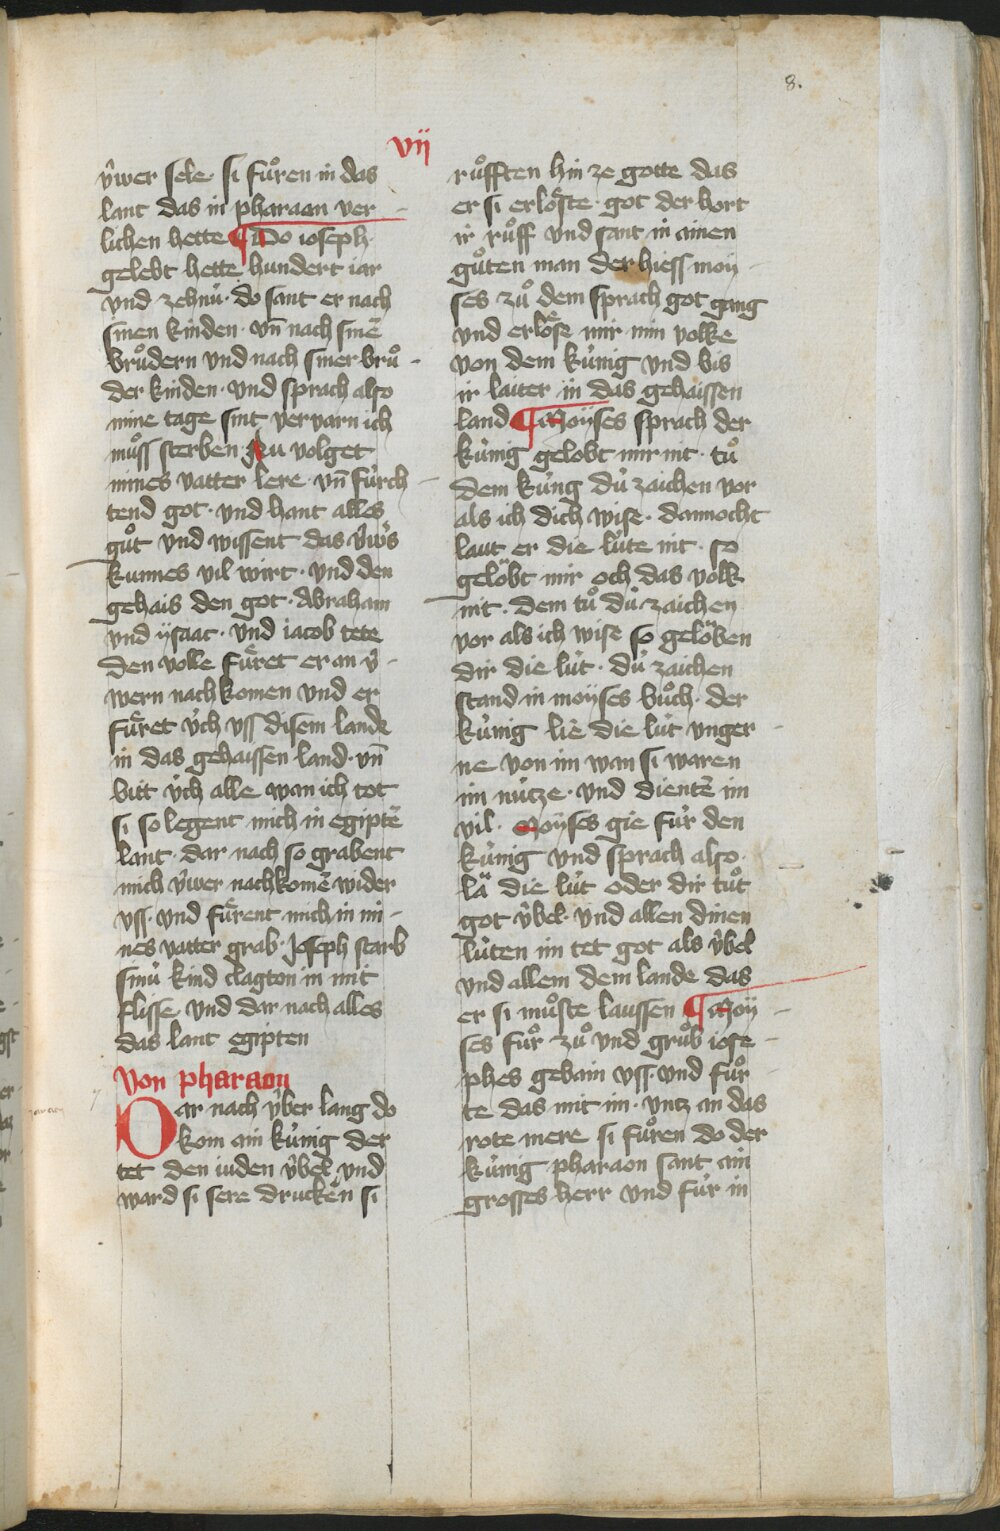 8.
vij
v̂wer sele · si fuͦren in das
lant das in pharaon ver
lichen hette ¶ Do ioseph ·
gelebt hette hundert iar
vnd zehnu̍ · do sant er nach
sinen kinden · vn̄ nach sinē
bruͦdern vnd nach siner bruͦ -
der kinden · vnd sprach also
mine tage sint vervarn ich
muͦss sterben Nu volget
mines vatter lere · vn̄ fu̍rch -
tend got · vnd hant alles
guͦt vnd wissent das v̂wˢs
kunnes vil wirt · vnd den
gehais den got · Abraham
vnd ysaac · vnd iacob tete
den volle fuͤret er an v̂ -
wern nachkomen vnd er
fuͤret v̍ch vss disem lande
in das gehaissen land · vn̄
bitt v̍ch alle wan ich tot
si so legent mich in egiptē
lant · dar nach so grabent
mich v̂wer nachkomē wider
vss · vnd fuͤrent mich in mi -
nes vatter grab · Joseph starb
sinu̍ kind clagton in mit
flisse vnd dar nach alles
das lant egipten
Von pharaon
Dar nach v̂ber lang do
kom ain ku̍nig der
tet den iuden v̂bel vnd
ward si sere drucken si
ruͦfften hin ze gotte das
er si erloͤste · got der hort
ir ruͦff vnd sant in ainen
guͦten man der hiess moy -
ses zuͦ dem sprach got gang
vnd erloͤse mir min volke
von dem ku̍nig vnd bis
ir laiter in das gehaissen
land ¶ Moyses sprach der
ku̍nig gelobt mir nit · tuͦ
dem ku̍ng du̍ zaichen vor
als ich dich wise · dannocht
laut er die lu̍te nit · so
geloͤbt mir och das volk
nit · dem tuͦ du̍ zaichen
vor als ich wise so geloͤben
dir die lu̍t · du̍ zaichen
stand in moyses buͦch · der
ku̍nig lie die lu̍t vnger -
ne von im wan si waren
im nu̍tze · vnd dientē im
vil · Moyses gie fu̍r den
ku̍nig vnd sprach also ·
lä die lu̍t oder dir tuͦt
got v̂bel · vnd allen dinen
lu̍ten im tet got als v̂bel
vnd allem dem lande das
er si muͦste laussen ¶ Moy -
ses fuͦr zuͦ vnd gruͦb iose -
phes gebain vss · vnd fuͦr -
te das mit im · vntz an das
rote mere si fuͦren do der
ku̍nig pharaon sant ain
grosses herr vnd fu̍r in